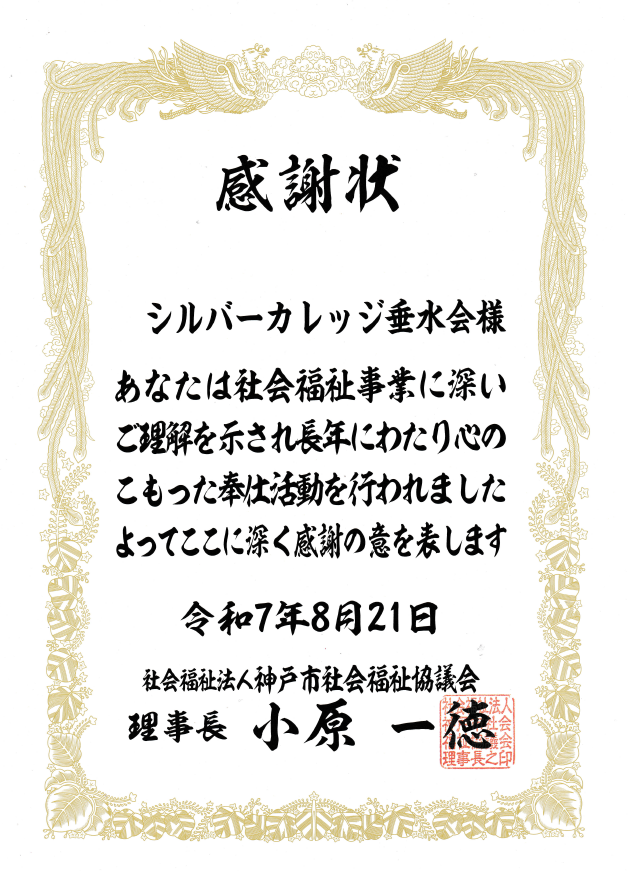 感謝状
シルバーカレッジ垂水会様
あなたは社会福祉事業に深い
ご理解を示され長年にわたり心の
こもった奉仕活動を行われました
よってここに深く感謝の意を表します
令和7年8月21日
社会福祉法人神戸市社会福祉協議会
理事長 小原 一徳
理事長之印